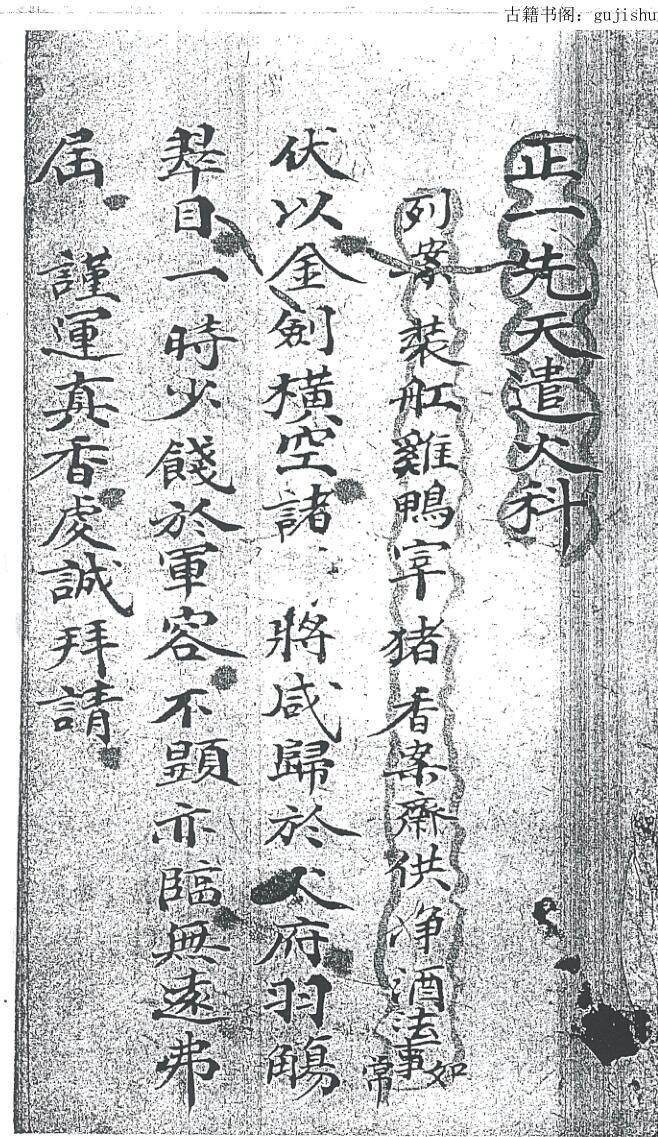 古籍书阁：gujishu
正一先天遣火科
列案裝舡雞鴨宰猪香案齋供净酒法事如常
伏以金劍橫空諸 將咸歸於火府羽觴
翠目一時少餞於軍容不顕亦臨無遠弗
届 謹運真香虔誠拜請